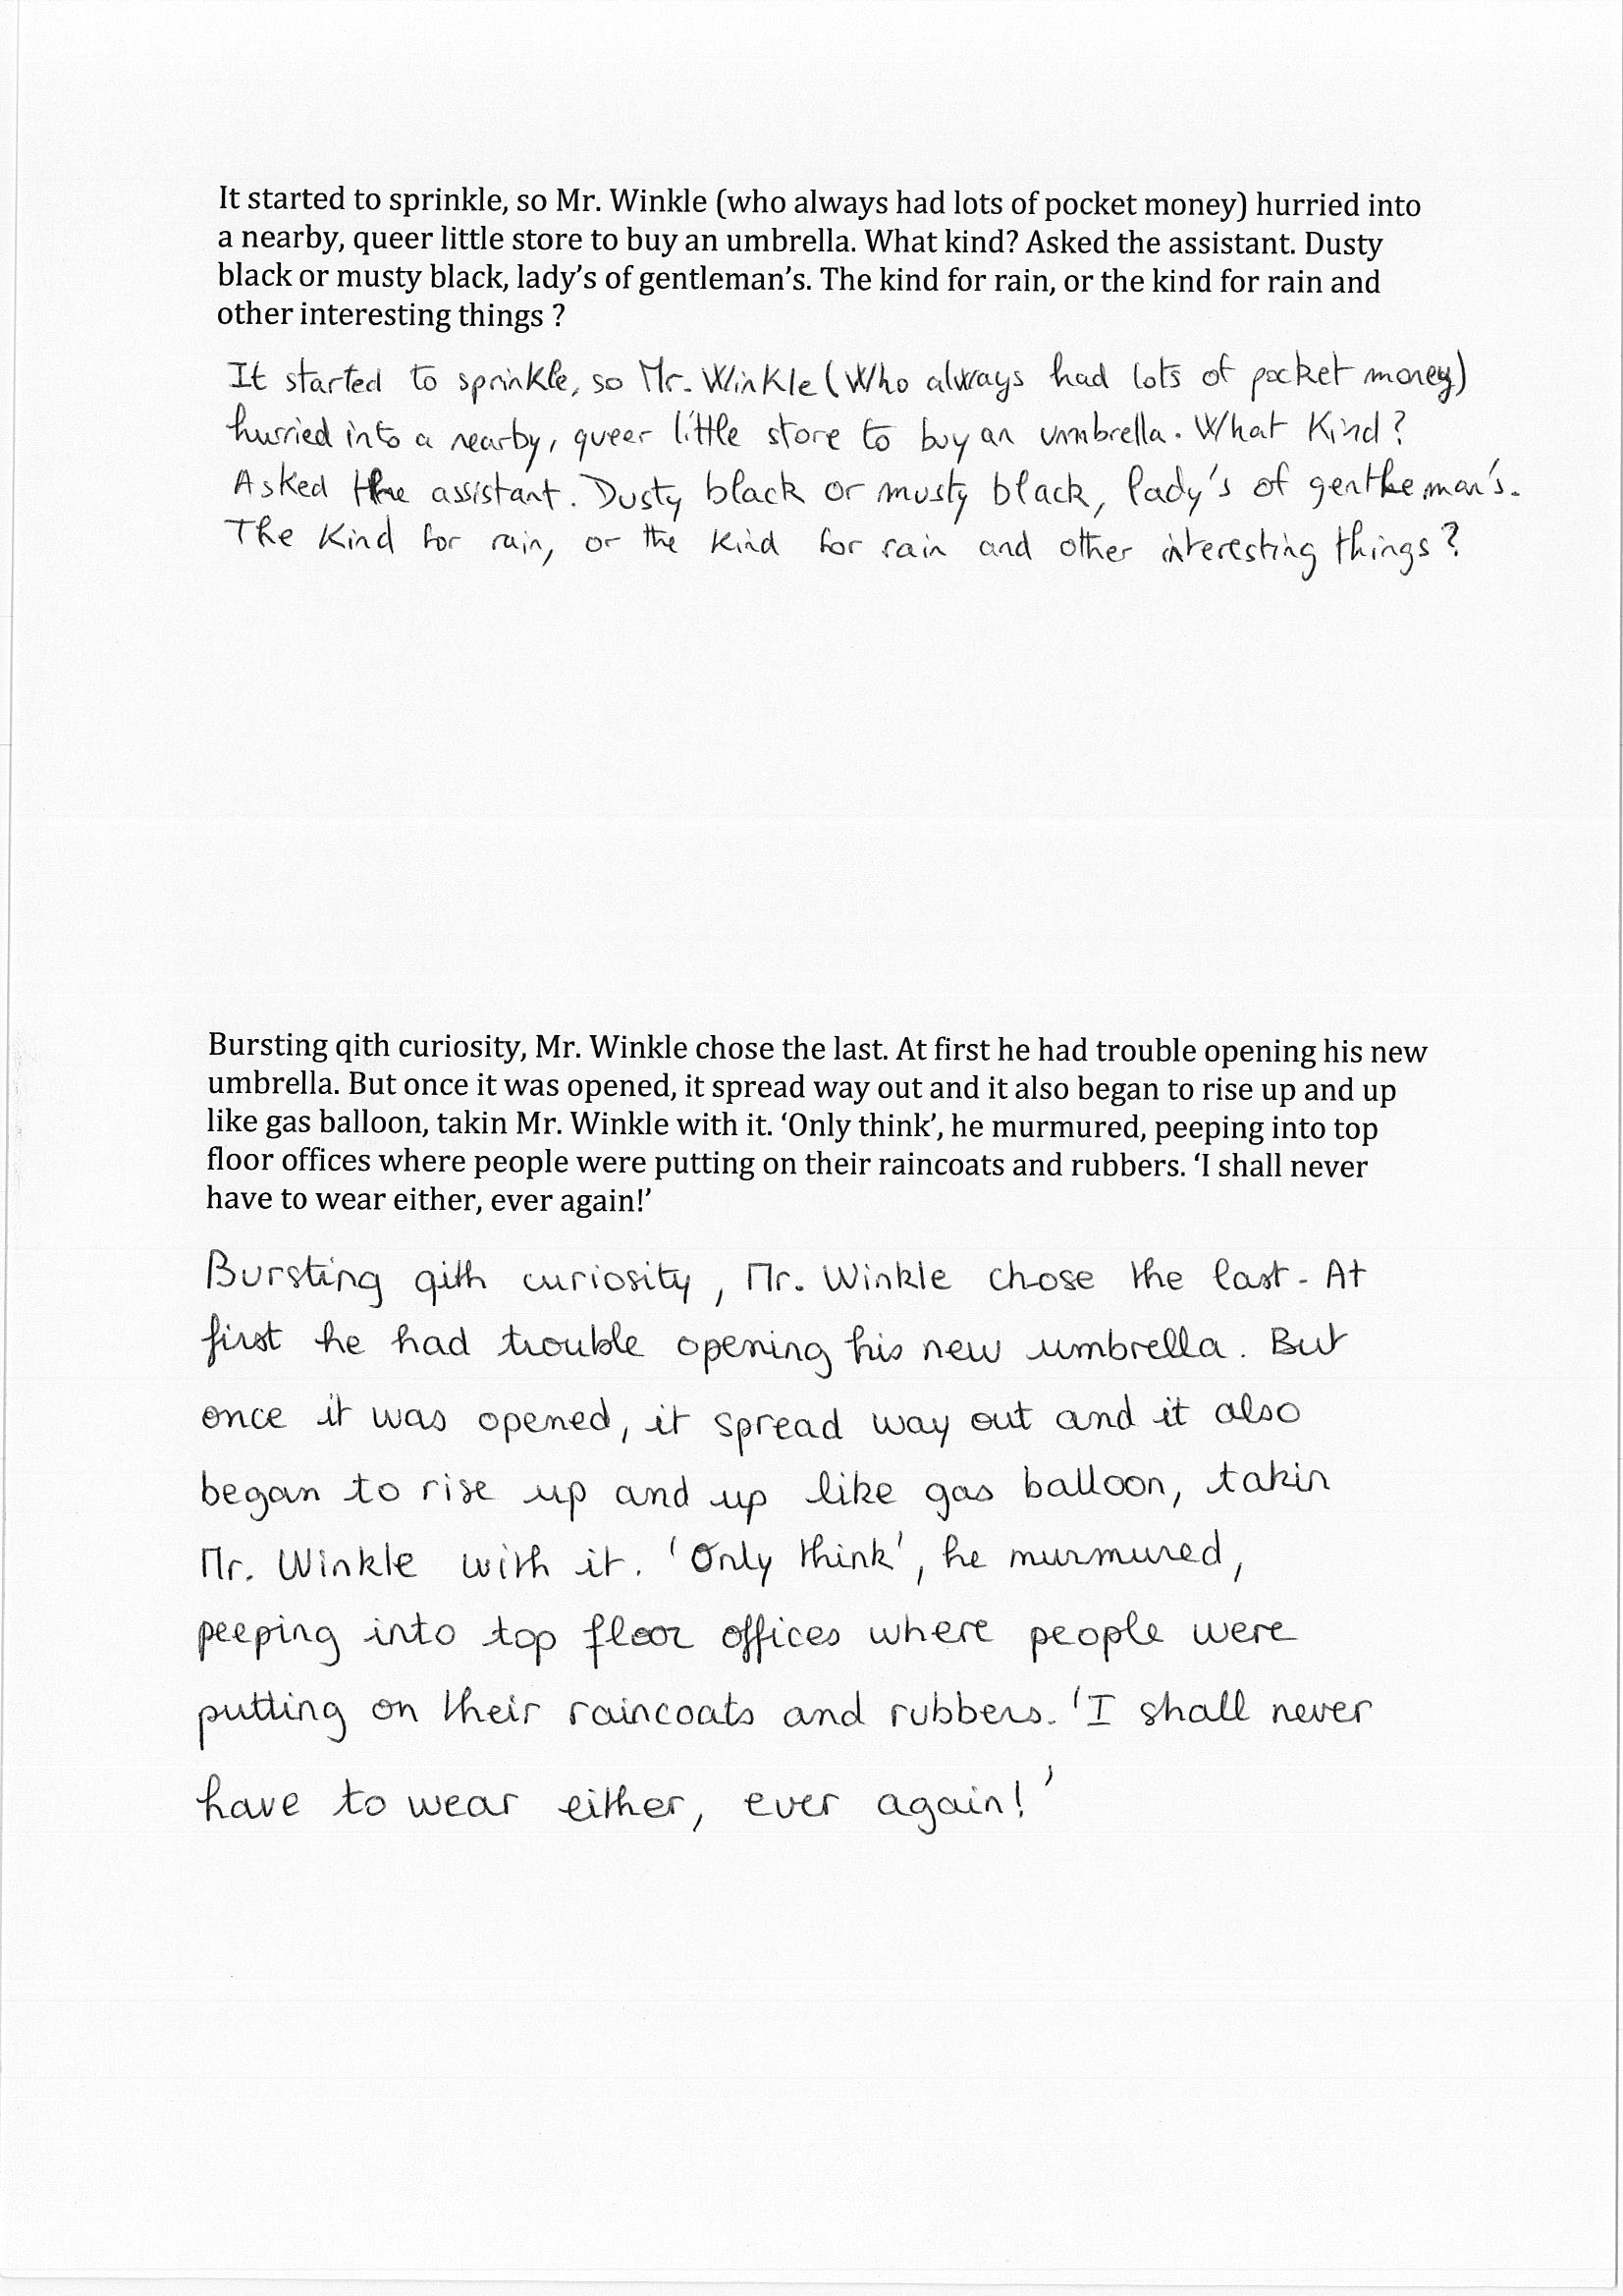 It started to sprinkle, so Mr. Winkle (who always had lots of pocket money) hurried into
a nearby, queer little store to buy an umbrella. What kind? Asked the assistant. Dusty
black or musty black, lady's of gentleman's. The kind for rain, or the kind for rain and
other interesting things ?
It started to sprinkle, so Mr. Winkle (Who always had lots of pocket money)
hurried into a nearby, queer little store to buy an umbrella. What Kind?
Asked the assistant. Dusty black or musty black, lady's of gentleman's.
The Kind for rain, or the kind for rain and other interesting things?
Bursting qith curiosity, Mr. Winkle chose the last. At first he had trouble opening his new
umbrella. But once it was opened, it spread way out and it also began to rise up and up
like gas balloon, takin Mr. Winkle with it. ‘Only think’, he murmured, peeping into top
floor offices where people were putting on their raincoats and rubbers. ‘I shall never
have to wear either, ever again!’
Bursting qith curiosity, Mr. Winkle chose the last. At
first he had trouble opening his new umbrella. But
once it was opened, it spread way out and it also
began to rise up and up like gas balloon, takin
Mr. Winkle with it. 'Only think', he murmured,
peeping into top floor offices where people were
putting on their raincoats and rubbers. 'I shall never
have to wear either, ever again!'